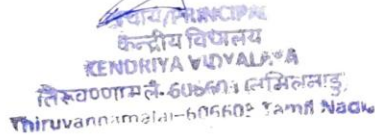 प्राचार्य/PRINCIPAL
केन्द्रीय विद्यालय
KENDRIYA VIDYALAYA
तिरुवण्णामलै-606603 तमिलनाडु
Thiruvannamalai-606603 Tamil Nadu